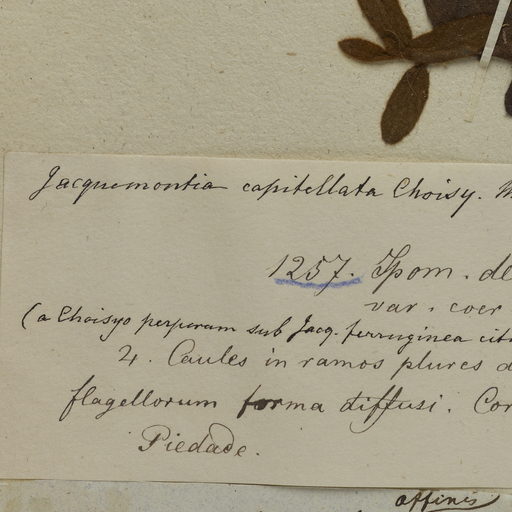 Jacquemontia capitellata Choisy. M
1257. Ipom. de
var. coer
(a Choisyo perperam sub Jacq. ferruginea cit
2. Caules in ramos plures d
flagellorum forma diffusi. Cor
Piedade.
affinis